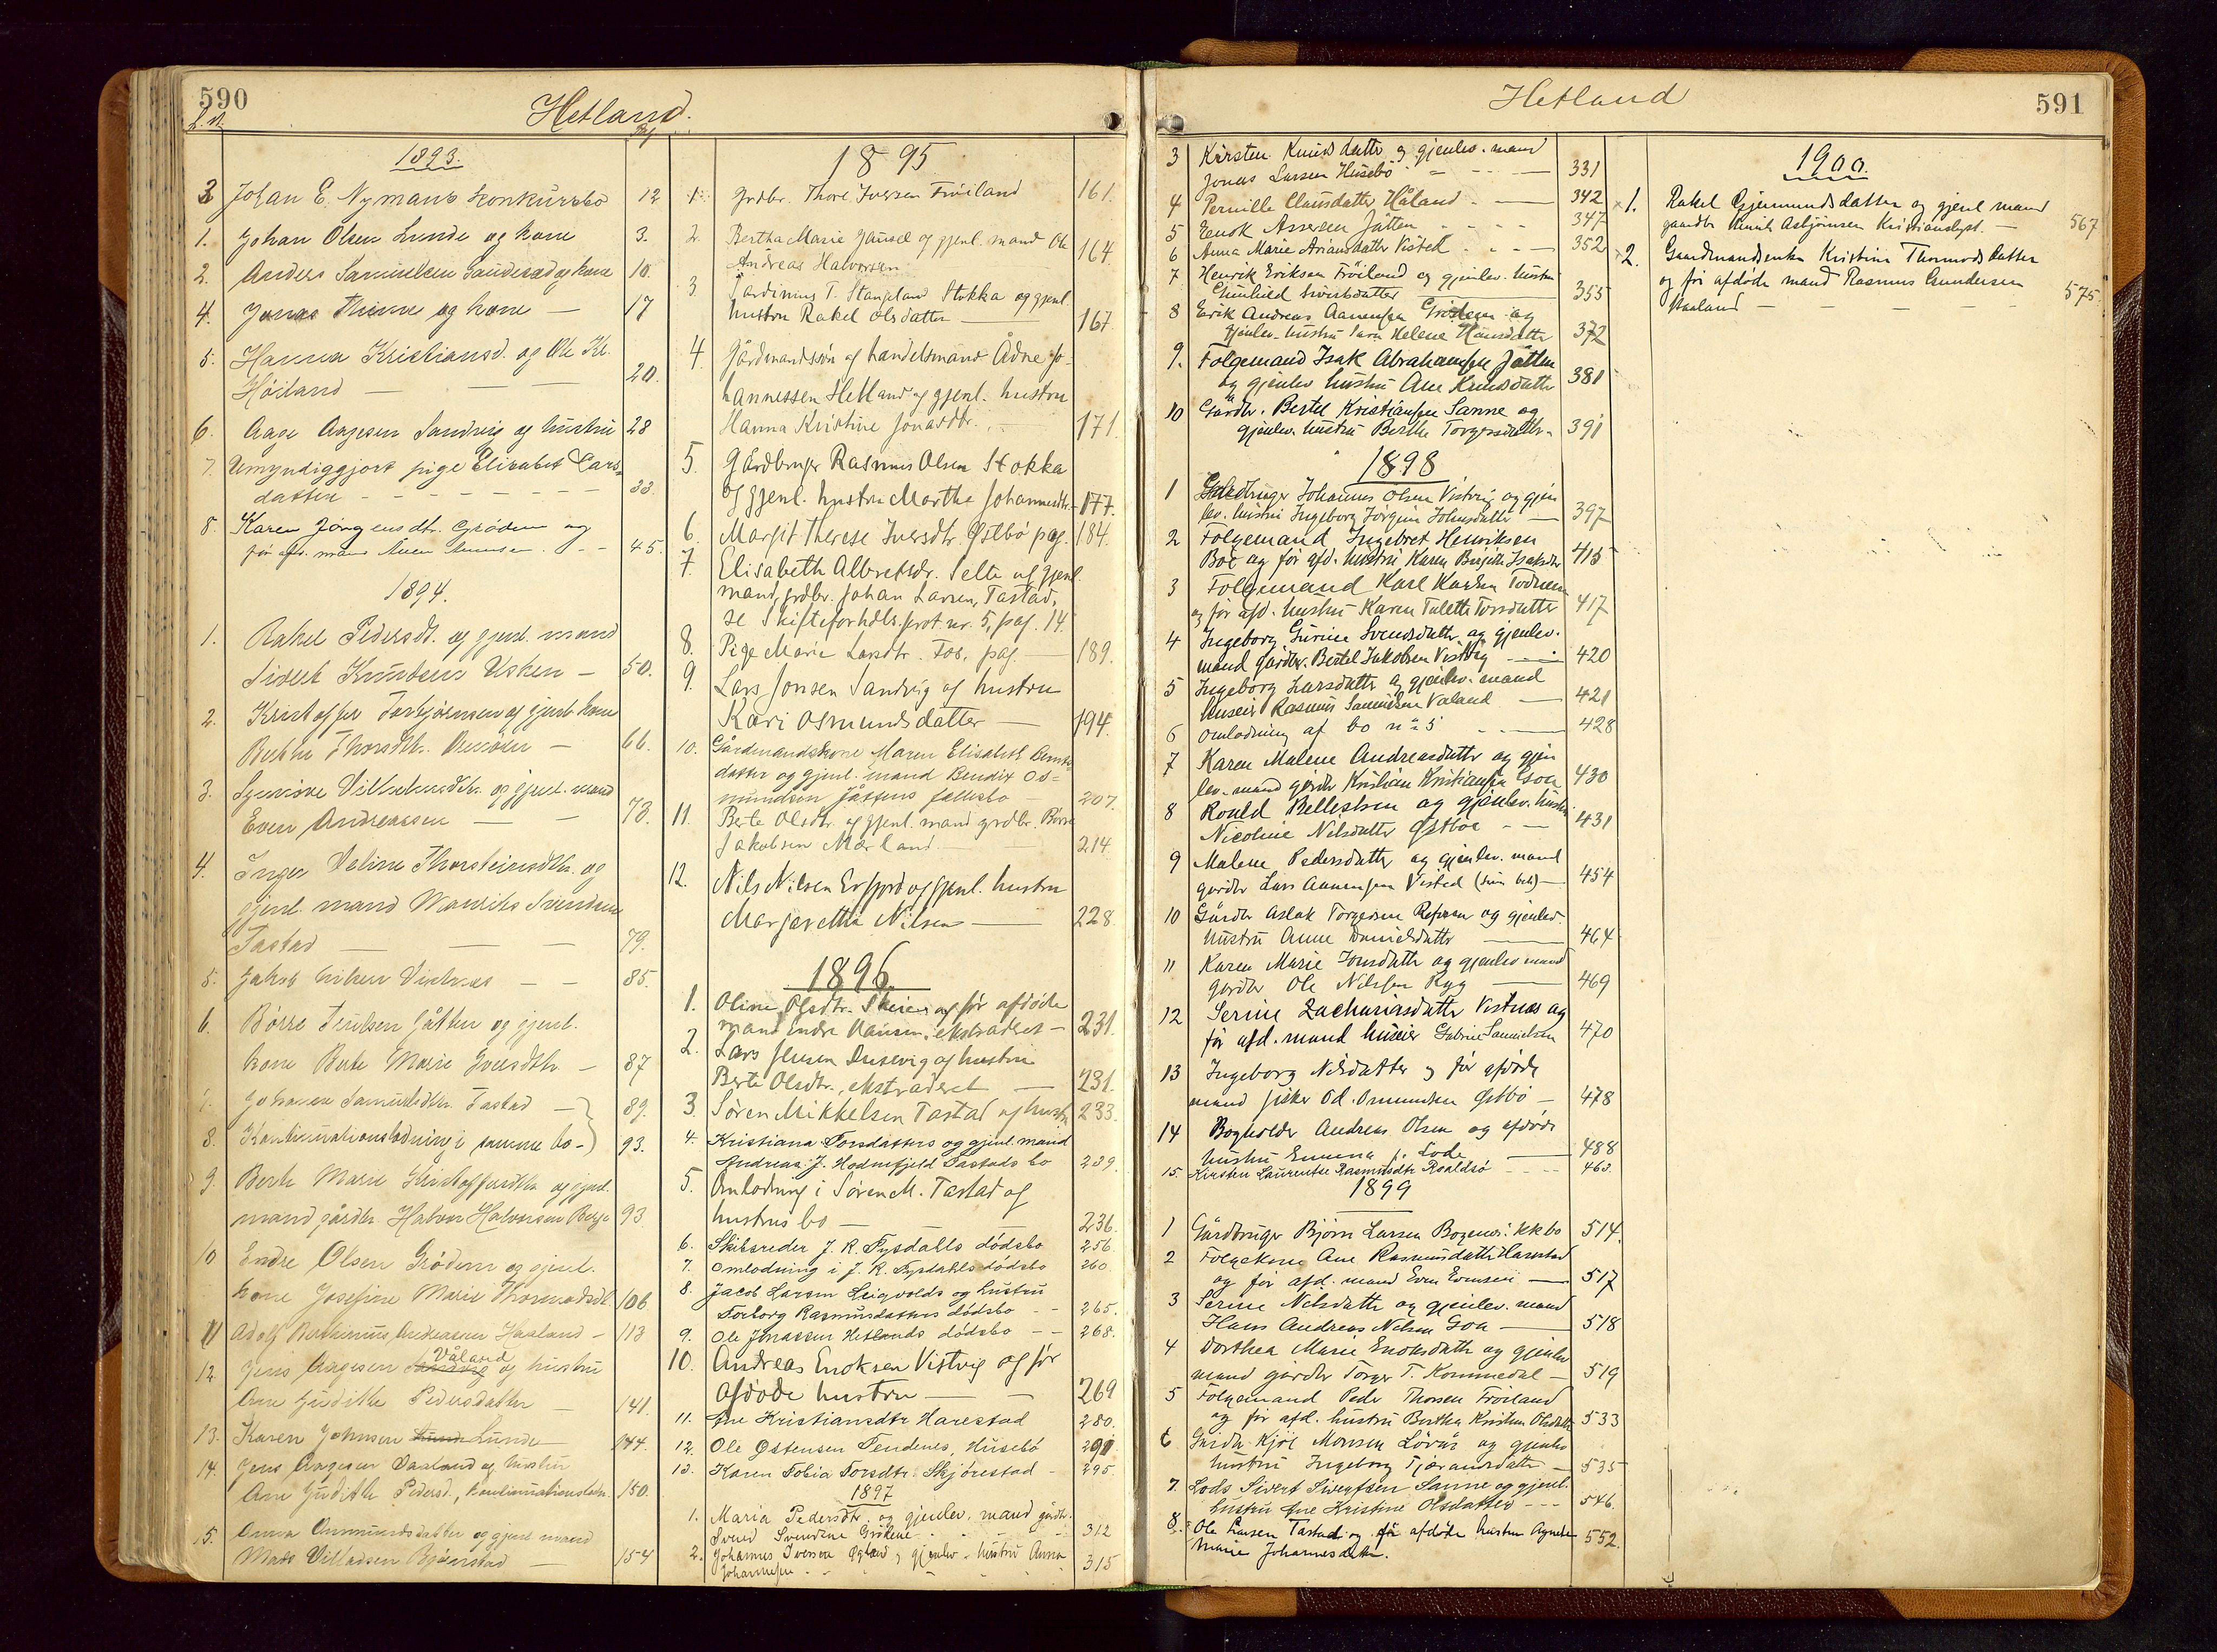 590
L. n.
Hetland.
Pag.
1893.
3 Johan E. Nymans konkursbo 12
1. Johan Olsen Lunde og kone 3.
2. Anders Samuelsen Gausdad og kone 10.
4. Jonas Thime og kone — 17
5. Hanna Kristiansd. og Ole Kr.
Høiland — — — 20.
6. Aage Aagesen Sandvig og hustru 28
7. Umyndiggjort pige Elisabet Lars-
datter - - - - - - - 33
8. Karen Jörgensdtr. Grödem og
før afd. mand - - 45.
1894.
1. Rakel Pedersdt. og gjenl. mand
Sivert Knudsen Usken — 50.
2. Kristoffer Torbjörnsen og gjenl. kone
Berthe Thorsdtr. — 66.
3. og gjenl. mand
Even Andreassen — — 73.
4. Inger Deline Thorsteinsdtr. og
gjenl. mand Mauritz Svendsen
Tastad — — — 79.
5. Jakob Nilsen Vistnæs — — 85.
6. Börre Teulsen Jåtten og gjenl.
kone Berte Marie Iversdtr. — 87
7. Johanne Samuelsdtr. Tastad — 89.
8. Kontinuationslodning i samme bo - 93.
9. Berte Marie Kristoffersdtr. og gjenl.
mand gårdbr. Halvor Halvorsen Berge 93
10 Endre Olsen Grödem og gjenl.
kone Josefine Marie Thomasdt. 106
11 Adolf Berthinius Andreassen Haaland — 113
12. Jens Aagesen Sandvig Våland og hustru
Ane Judithe Pedersdatter — 141.
13. Karen Johnsen Lunde — 144.
14. Jens Aagesen Vaaland og hustru
Ane Judithe Pedersd., kontinuationslodn. 150.
15. Anna Ommundsdatter og gjenl mand
Mads Villadsen Björnstad — 154
1895
1. Grdbr. Thore Iversen Fröiland 161.
2. Bertha Marie Gausel og gjenl. mand Ole
Andreas Halvorsen 164.
3 Sardinius T. Stangeland Stokka og gjenl
hustru Rakel Olsdatter — 167.
4. Gårdmandssøn og handelsmand Ådne Jo-
hannessen Hetland og gjenl. hustru
Hanna Kristine Jonasdtr. — 171.
5. Gårdbruger Rasmus Olsen Stokka
og gjenl. hustru Marthe Johannesdtr. 177.
6. Margit Therese Iversdtr. Østbø pag. 184.
7. Elisabeth Albretsdr. Selte og gjenl.
mand, grdbr. Johan Larsen, Tastad,
se Skifteforhdls. prot. nr. 5, pag. 14.
8. Pige Marie Larsdtr. Fos, pag. — 189.
9. Lars Jonsen Sandvig og hustru
Kari Osmundsdatter — 194.
10. Gårdmandskone Maren Elisabeth Bernts-
datter og gjenl. mand Bendix Os-
mundsen Jåttens fællesbo — 207.
11. Berte Olsdtr. og gjenl. mand grdbr. Börre
Jakobsen Mærland. — 214
12. Nils Nilsen Erfjord og gjenl. hustru
Margarethe Nilsen — 228
1896.
1. Oline Olsdtr. Skeien og før afdøde
mand Endre Hansen, ekstraderet — 231.
2. Lars Jensen Dusevig og hustru
Berte Olsdtr., ekstraderet — 231.
3. Søren Mikkelsen Tastad og hustru 233.
4. Kristiana Torsdatters og gjenl. mand
Andreas J. Hodnefjeld Tastads bo 239.
5. Omlodning i Søren M. Tastad og
hustrus bo — 236.
6. Skibsreder J. R. Tysdalls dødsbo 256.
7. Omlodning i J. R. Tysdahls dødsbo 260
8. Jacob Larsen Leigvolds og hustru
Torborg Rasmusdatters dødsbo - - 265.
9. Ole Jonassen Hetlands dødsbo — — 268.
10. Andreas Enoksen Vistvig og før
afdøde hustru — — 269
11. Ane Kristiansdtr Harestad 280.
12. Ole Østensen Tendenes, Husebö 291.
13. Karen Tobia Torsdtr. Skjörestad - 295.
1897
1. Maria Pedersdtr. og gjenlev. mand gårdbr.
Svend Svendsen Grökene - 312
2. Johannes Iversen Øgland og gjenlev. hustru Anna
Johannesen - - - 315
591
Hetland
3 Kirsten Knudsdatter og gjenlev. mand
Jonas Larsen Husebö - - — 331
4 Pernille Clausdatter Håland - — 342
5 Eenok Assersen Jåtten - - - - 347
6 Anna Marie Ariansdatter Visted - - — 352
7 Henrik Eriksen Fröiland og gjenlev. hustru
Gunhild Sivertsdatter — 355
8 Erik Andreas Aanensen Grödem og
gjenlev. hustru Sara Helene Hansdatter 372
9. Folgemand Isak Abrahamsen Jåtten
og gjenlev hustru Ane Knudsdatter 381
10 Gårdbr. Bertel Kristiansen Sanne og
gjenlev. hustru Berthe Torgersdatter - 391
1898
1 Gårdbruger Johannes Olsen Vistvig og gjen
lev. hustru Ingeborg Jörgine Johnsdatter — 397
2 Folgemand Ingebret Henriksen
Bøe og før afd. hustru Karen Birgithe Isaksdtr 415
3 Folgemand Karl Karlsen Todnem
og før afd. hustru Karen Talette Torsdatter 417
4 Ingeborg Gurine Svendsdatter og gjenlev.
mand gårdbr. Bertel Jakobsen Vistvig — 420
5 Ingeborg Larsdatter og gjenlev. mand
Huseier Rasmus Samuelsen Våland — 421
6 Omlodning af bo nº 5 - - — 428
7 Karen Malene Andreasdatter og gjen
lev. mand gårdbr Kristian Kristiansen Goa 430
8 Roald Bellesen og gjenlev. hustru
Nicoline Nilsdatter Østbøe - — 431
9 Malene Pedersdatter og gjenlev. mand
gårdbr Lars Aanensen Visted — 454
10 Gårdbr Aslak Torgersen Refsnæs og gjenlev.
hustru Anne Danielsdatter — 464
11 Karen Marie Jonsdatter og gjenlev mand
gårdbr Ole Nilsen Ryg — 469
12 Serine Zachariasdatter Vistnæs og
før afd. mand huseier Gabriel Samuelsen 470
13 Ingeborg Nilsdatter og før afdøde
mand fisker Od. Osmundsen Østbö — 478
14 Bogholder Andreas Olsen og afdøde
hustru Emma f. Lode — 488
15. Kirsten Laurentse Rasmusdtr Roaldsö - - - - 463.
1899
1 Gårdbruger Bjørn Larsen Bogenes. kk bo 514.
2 Folgekone Ane Rasmusdatter Harestad
og før afd. mand Even Evensen — 517
3 Serine Nilsdatter og gjenlev. mand
Hans Andreas Nilsen Goa — 518
4 Dorthea Marie Enoksdatter og gjenlev
mand gårdbr Torger T. Kommedal — 519
5 Folgemand Peder Thorsen Fröiland
og før afd. hustru Berthe Kristine Olsdatter 533
6 Gårdbr. Kjöl Monsen Lövås og gjenlev
hustru Ingeborg Tjærandsdatter — 535
7. Lods Sivert Sivertsen Sanne og gjenl.
hustru Ane Kristine Olsdatter - - - 546.
8. Ole Larsen Tastad og før afdøde hustru Agnethe
Marie Johannesdatter. 552.
1900.
1. Rakel Gjermundsdatter og gjenl mand
gaardbr Knut Asbjörnsen Kristianslyst. — 567
2. Gaardmandsenke Kristine Thormodsdatter
og før afdøde mand Rasmus Gundersen
Haaland — — — 575.